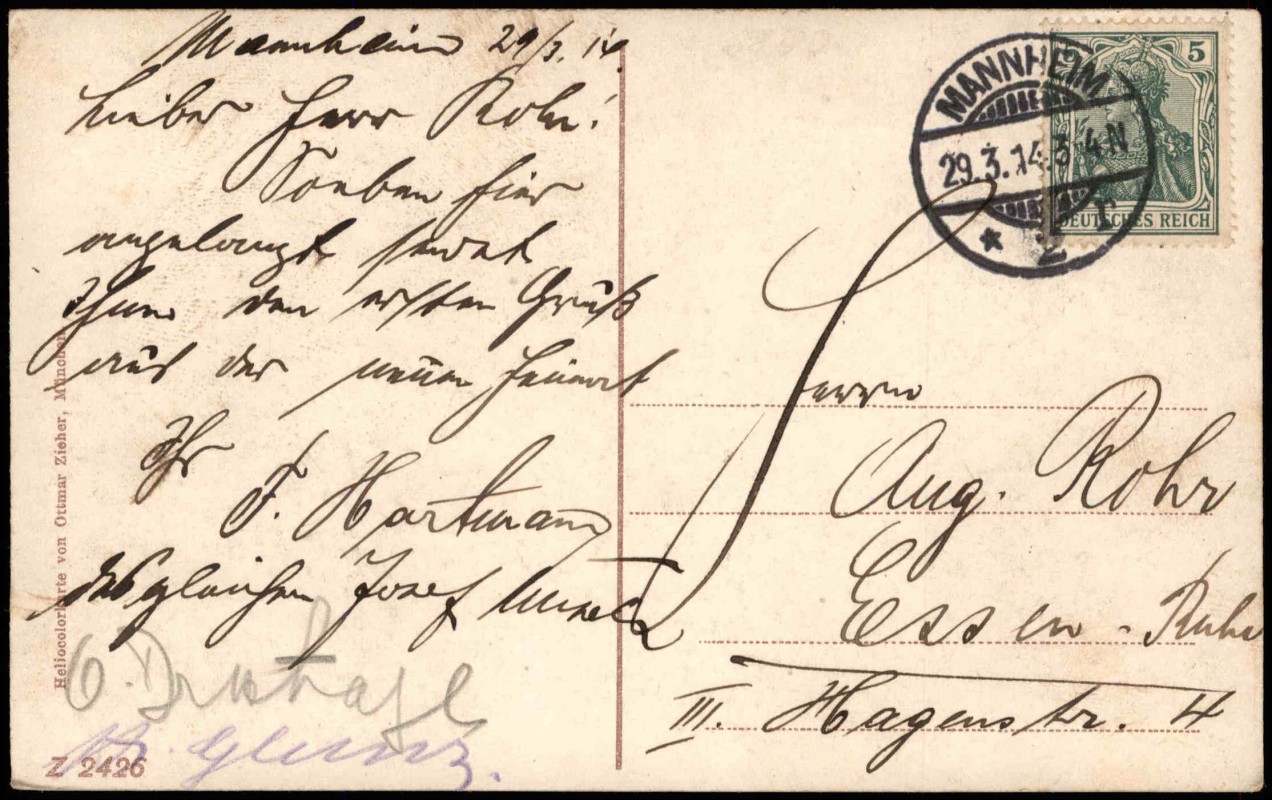 Mannheim 29/3. 14.
Lieber Herr Rohr!
Soeben hier
angelangt sendet
Ihnen den ersten Gruß
aus der neuen Heimat
Ihr
F. Hartmann
desgleichen Josef
Heliocolorkarte von Ottmar Zieher, München
Z 2426
MANNHEIM
29.3.14.3-4N
* 2 r
5
DEUTSCHES REICH
Herrn
Aug. Rohr
Essen - Ruhr
III. Hagenstr. 4